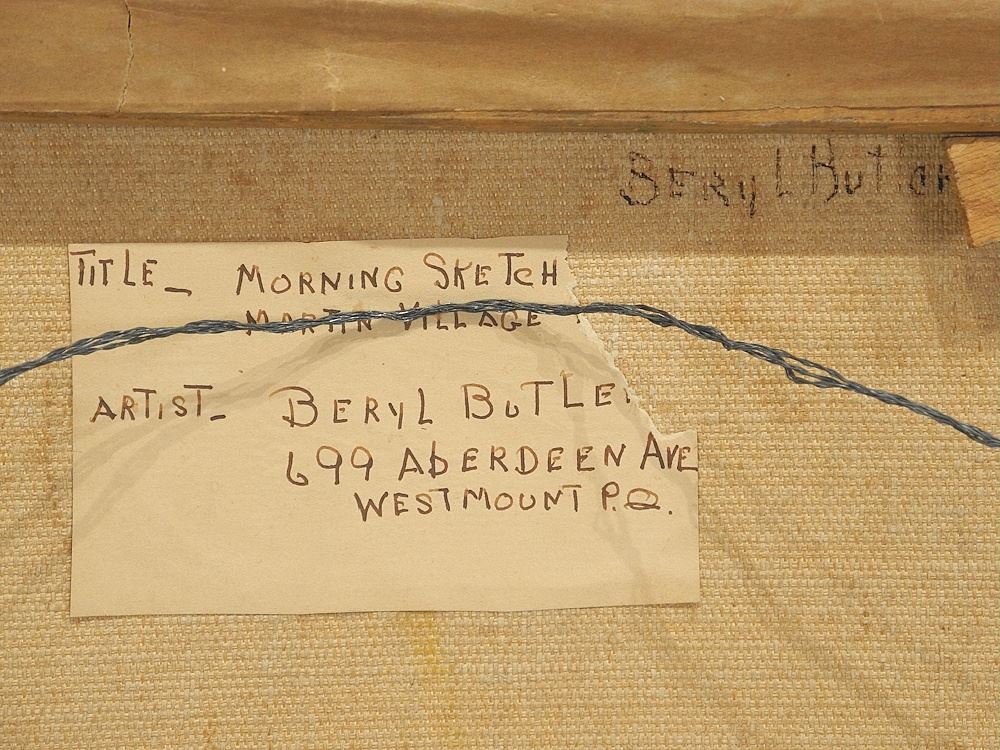 BERYL BUTLER
TITLE_ MORNING SKETCH
MARTIN VILLAGE
ARTIST_ BERYL BUTLE
699 ABERDEEN AVE
WESTMOUNT P.Q.